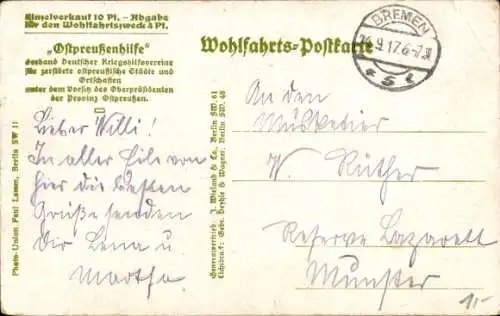 Einzelverkauf 10 Pf. - Abgabe
für den Wohlfahrtszweck 4 Pf.
„Ostpreußenhilfe"
Verband Deutscher Kriegshilfsvereine
für zerstörte ostpreußische Städte und
Ortschaften
unter dem Vorsitz des Oberpräsidenten
der Provinz Ostpreußen.
Wohlfahrts-Postkarte
BREMEN
9.17.6-7
Lieber Willi!
In aller Eile von
hier die besten
Grüße senden
Dir Lena u
Martha.
Photo-Union Paul Lamm, Berlin SW 11
Generalvertrieb: J. Wieland & Co. Berlin SW. 61
Lichtdruck: Gebr. Deyhle & Wagner, Berlin SW. 48
An den
Musketier
W. Rüther
Reserve Lazarett
Munster
11-